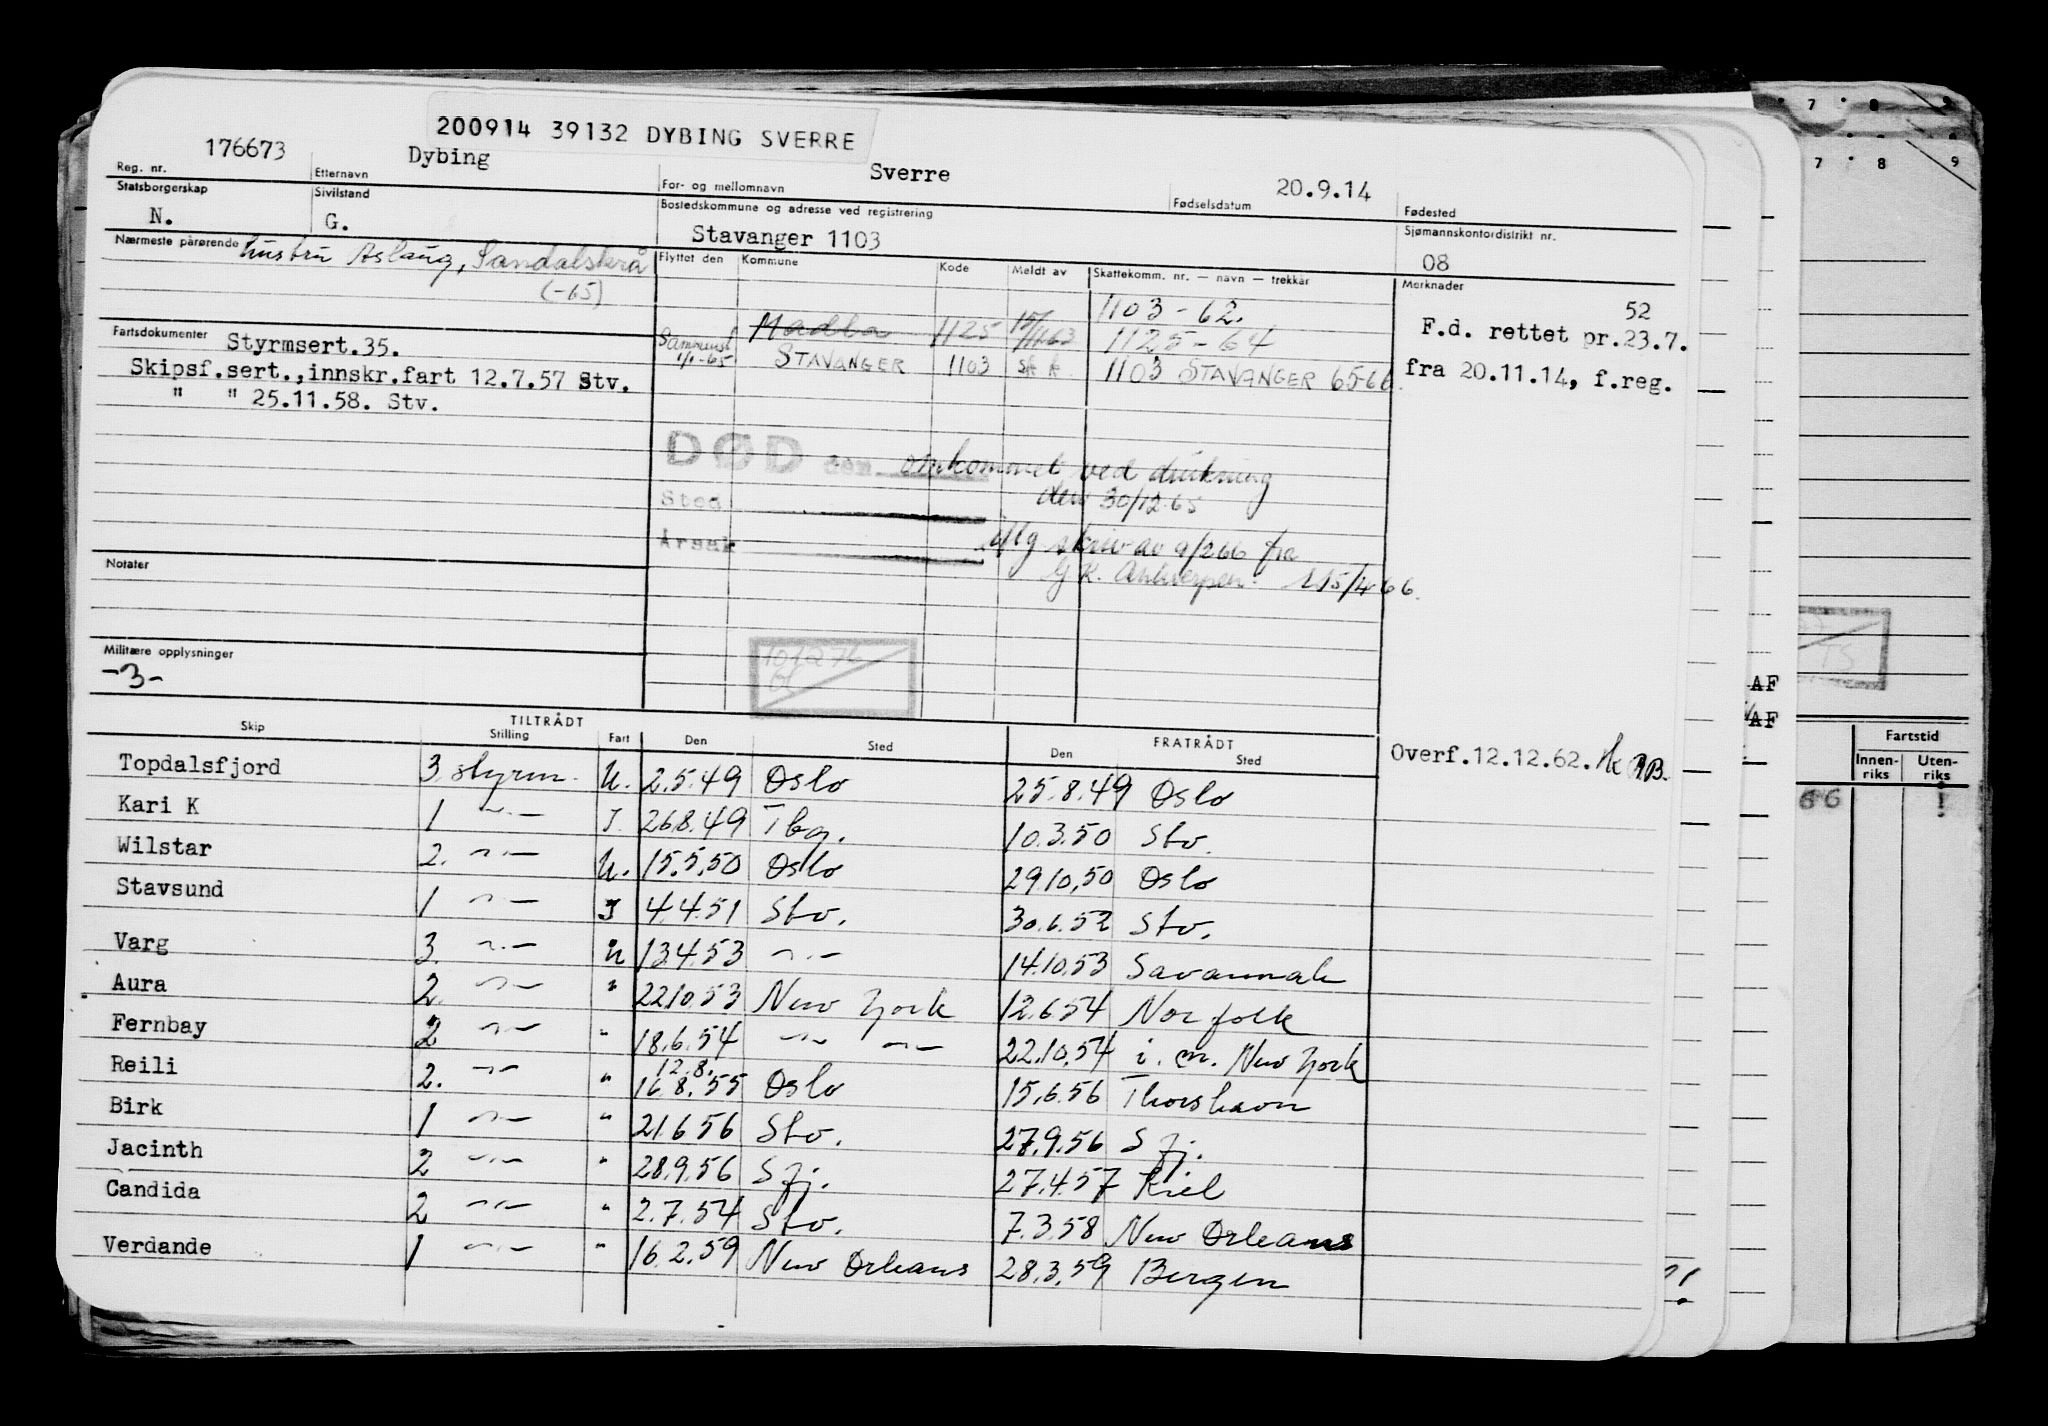 200914 39132 DYBING SVERRE
Reg. nr. 176673 Etternavn Dybing For- og mellomnavn Sverre Fødselsdatum 20.9.14 Fødested
Statsborgerskap N. Sivilstand G. Bostedskommune og adresse ved registrering Stavanger 1103 Sjømannskontordistrikt nr. 08
Nærmeste pårørende hustru Aslaug, Sandalskrå
(-65)
Flyttet den Kommune Kode Meldt av Skattekomm. nr. — navn — trekkår Merknader
1103 - 62.
Madla 1125 15/11.63 1125 - 64
Sammensl. 1/1-65 STAVANGER 1103 1103 STAVANGER 65-66.
52
F.d. rettet pr.23.7.
fra 20.11.14, f.reg.
Fartsdokumenter Styrmsert.35.
Skipsf.sert.,innskr.fart 12.7.57 Stv.
" " 25.11.58. Stv.
DØD den omkommet ved drukning
den 30/12.65
Sted
Årsak iflg. skriv av 9/2 66 fra
G.K. Antwerpen. 15/4 66.
Notater
Militære opplysninger
-3-
Skip TILTRÅDT Stilling Fart Den Sted FRATRÅDT Den Sted
Overf.12.12.62.
Topdalsfjord 3. styrm. U. 2.5.49 Oslo 25.8.49 Oslo
Kari K 1 -"- I. 26.8.49 Tbg. 10.3.50 Stv.
Wilstar 2. -"- U. 15.5.50 Oslo 29.10.50 Oslo
Stavsund 1 -"- I 4.4.51 Stv. 30.6.52 Stv.
Varg 3. -"- U 13.4.53 -"- 14.10.53 Savannah
Aura 2. -"- " 22.10.53 New York 12.6.54 Norfolk
Fernbay 2 -"- " 18.6.54 -"- -"- 22.10.54 i. m. New York
12.8.
Reili 2. -"- " 16.8.55 Oslo 15.6.56 Thorshavn
Birk 1 -"- " 21.6.56 Stv. 27.9.56 Sfj.
Jacinth 2 -"- " 28.9.56 Sfj. 27.4.57 Kiel
Candida 2 -"- " 2.7.54 Stv. 7.3.58 New Orleans
Verdande 1 -"- " 16.2.59 New Orleans 28.3.59 Bergen
7 8
7 8 9
AF
AF
Fartstid
Innen-riks Uten-riks
66